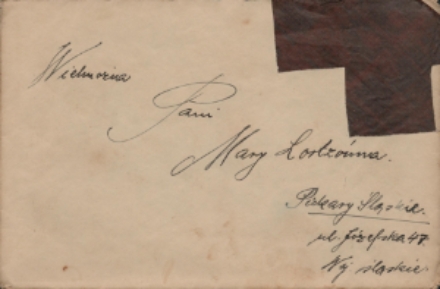 Wielmożna
Pani
Mary
Piekary Śląskie.
ul. Józefska 47
Wj. śląskie